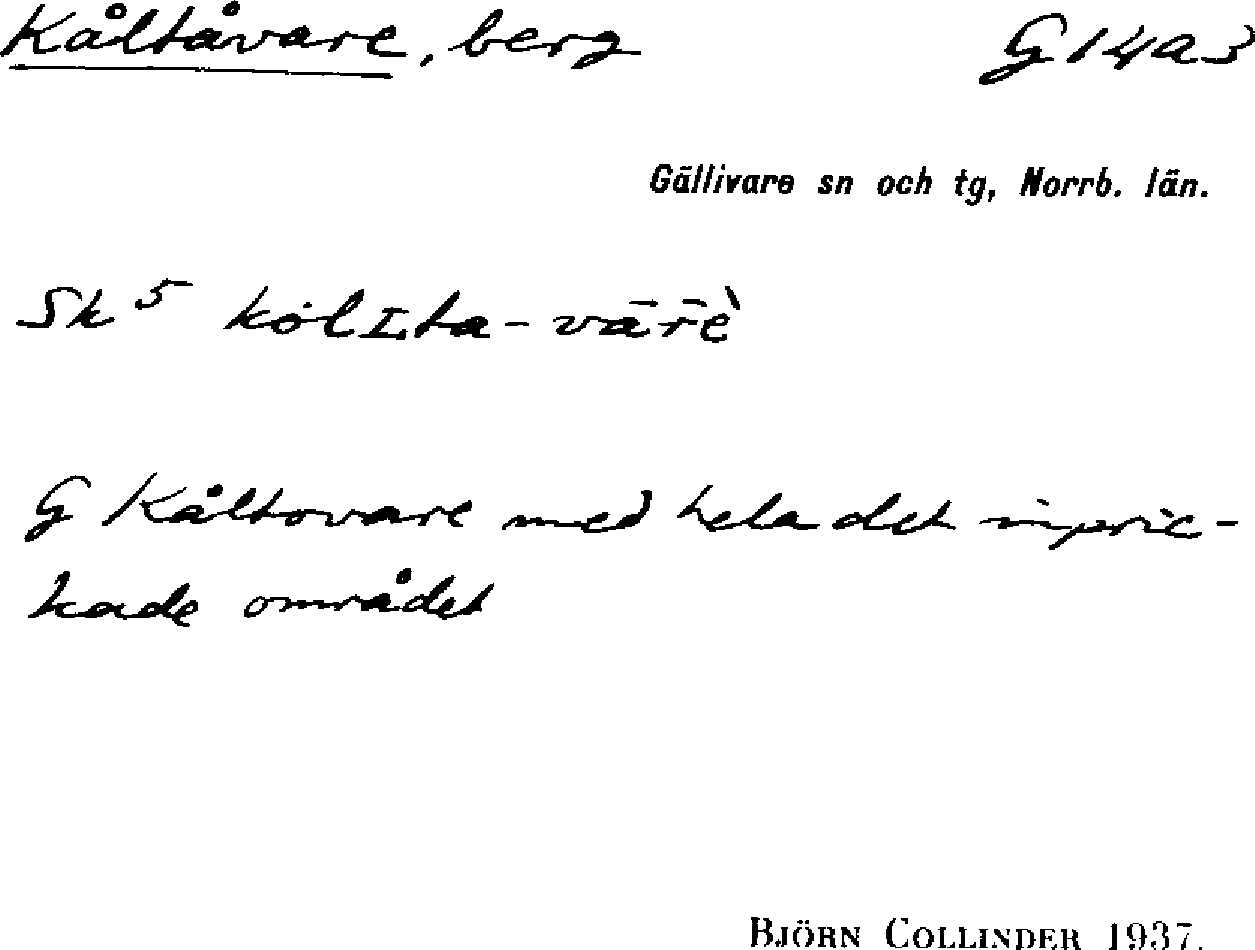 Kåltåvare, berg G14a3
Gällivare sn och tg, Norrb. län.
Sk⁵ kòlʟta-vār̄ḕ
G Kåltovare med hela det inpric-
kade området
BJÖRN COLLINDER 1937.